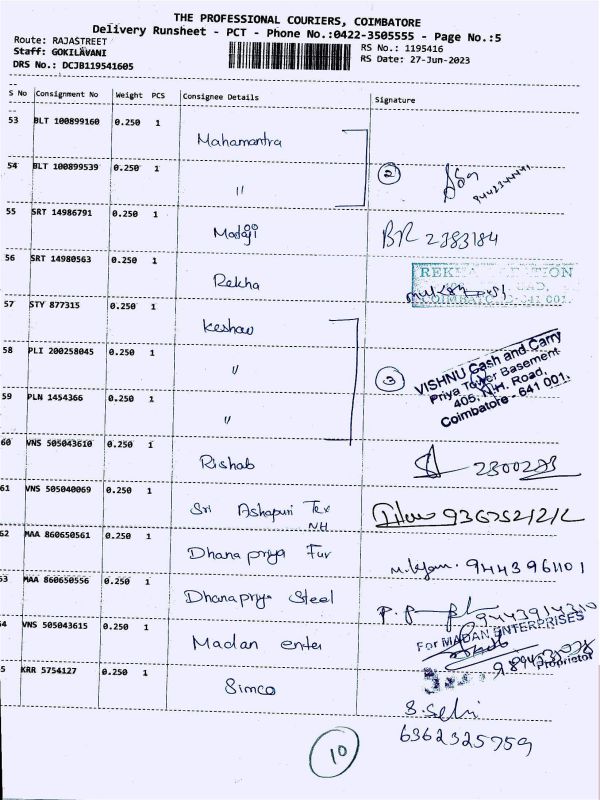 THE PROFESSIONAL COURIERS, COIMBATORE
Delivery Runsheet - PCT - Phone No.:0422-3505555 - Page No.:5
Route: RAJASTREET
Staff: GOKILAVANI
DRS No.: DCJB119541605
RS No.: 1195416
RS Date: 27-Jun-2023
S No Consignment No Weight PCS Consignee Details Signature
53 BLT 100899160 0.250 1 Mahamantra
54 BLT 100899539 0.250 1 " 2
55 SRT 14986791 0.250 1 Modaji BR 2383184
56 SRT 14980563 0.250 1 Rekha
57 STY 877315 0.250 1 Keshav
58 PLI 200258045 0.250 1 " 3 VISHNU Cash and Carry
Priya Tower Basement
405, N.H. Road,
Coimbatore - 641 001.
59 PLN 1454366 0.250 1 "
60 VNS 505043610 0.250 1 Rishab
61 VNS 505040069 0.250 1 Sri Ashapuri Tex
NH
62 MAA 860650561 0.250 1 Dhana priya Fur 9443961101
63 MAA 860650556 0.250 1 Dhanapriya Steel 9443914310
64 VNS 505043615 0.250 1 Madan enter For MADAN ENTERPRISES
Proprietor
5 KRR 5754127 0.250 1 Simco
S. Selvi
6362325759
10